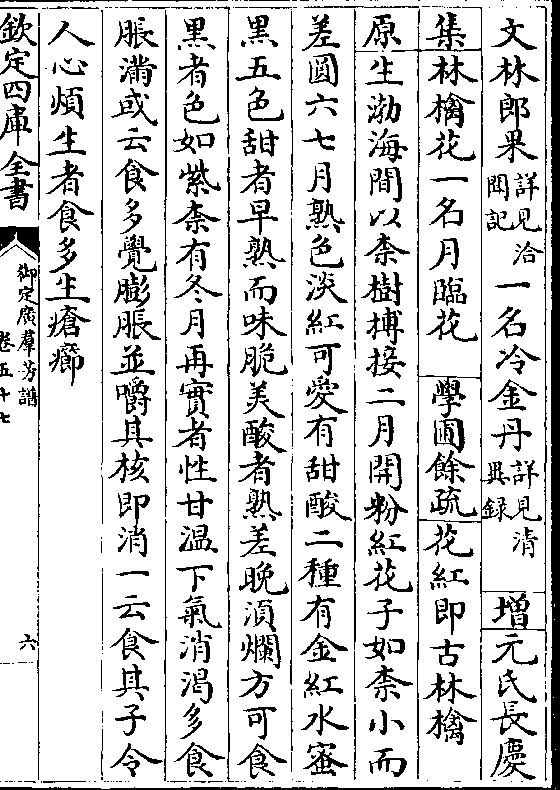 文林郎果詳見洽聞記一名冷金丹詳見清異錄 增元氏長慶
集林檎花一名月臨花 學圃餘疏花紅即古林檎
原生渤海間以柰樹摶接二月開粉紅花子如柰小而
差圓六七月熟色淡紅可愛有甜酸二種有金紅水蜜
黑五色甜者早熟而味脆美酸者熟差晚湏爛方可食
黑者色如紫柰有冬月再實者性甘温下氣消渴多食
脹滿或云食多覺膨脹並嚼其核即消一云食其子令
人心煩生者食多生瘡癤
欽定四庫全書
御定廣群芳譜
卷五十七
六